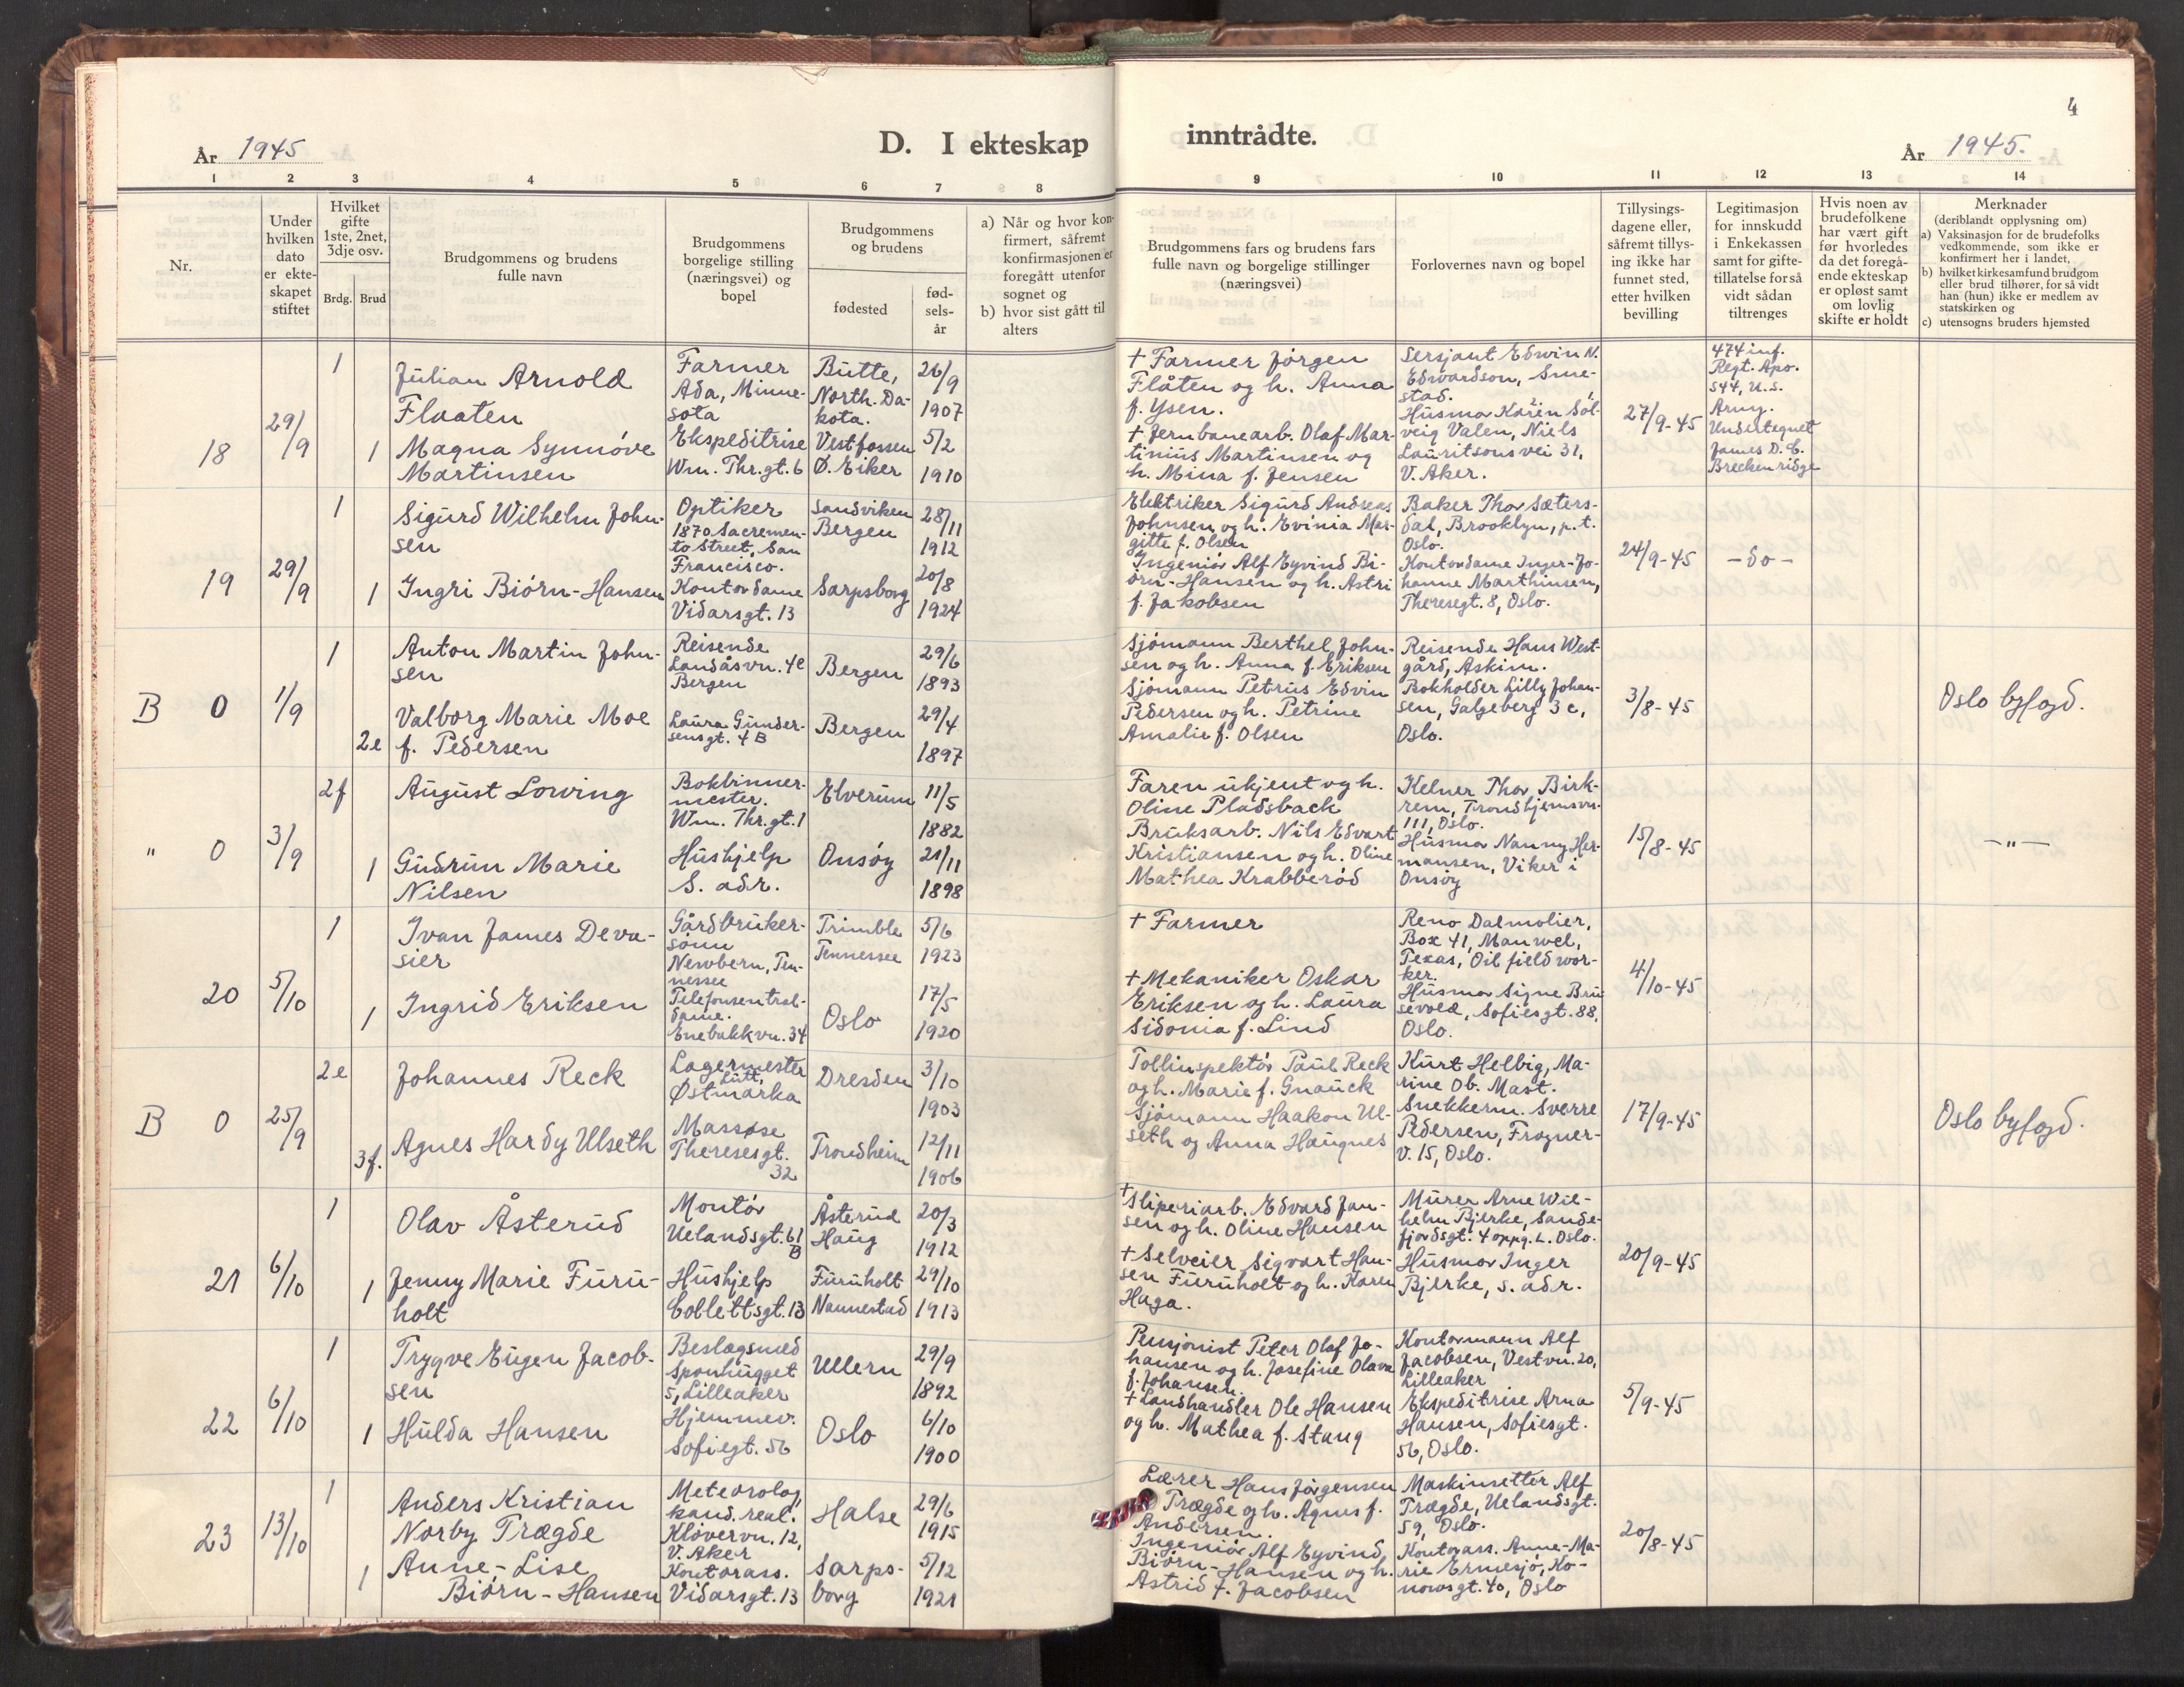 År 1945
D. I ekteskap
inntrådte.
4
År 1945.
1 2 3 4 5 6 7 8 9 10 11 12 13 14
Nr.
Under
hvilken
dato
er ekte-
skapet
stiftet
Hvilket
gifte
1ste, 2net,
3dje osv.
Brdg. Brud
Brudgommens og brudens
fulle navn
Brudgommens
borgelige stilling
(næringsvei) og
bopel
Brudgommens
og brudens
fødested
fød-
sels-
år
a) Når og hvor kon-
firmert, såfremt
konfirmasjonen er
foregått utenfor
sognet og
b) hvor sist gått til
alters
Brudgommens fars og brudens fars
fulle navn og borgelige stillinger
(næringsvei)
Forlovernes navn og bopel
Tillysings-
dagene eller,
såfremt tillys-
ing ikke har
funnet sted,
etter hvilken
bevilling
Legitimasjon
for innskudd
i Enkekassen
samt for gifte-
tillatelse for så
vidt sådan
tiltrenges
Hvis noen av
brudefolkene
har vært gift
før hvorledes
da det foregå-
ende ekteskap
er opløst samt
om lovlig
skifte er holdt
Merknader
(deriblandt opplysning om)
a) Vaksinasjon for de brudefolks
vedkommende, som ikke er
konfirmert her i landet,
b) hvilket kirkesamfund brudgom
eller brud tilhører, for så vidt
han (hun) ikke er medlem av
statskirken og
c) utensogns bruders hjemsted
18
29/9
1
Julian Arnold
Flaaten
Farmer
Ada, Minne-
sota
Butte,
North. Da-
kota.
26/9
1907
1
Magna Synnøve
Martinsen
Ekspeditrise
Wm. Thr.gt. 6
Vestfossen
Ø. Eiker
5/2
1910
+ Farmer Jörgen
Flåten og h. Anna
f. Ysen.
+ Jernbanearb. Olaf Mar-
tinius Martinsen og
h. Mina f. Jensen
Sersjant Edwin N.
Edwardson, Sme-
stad.
Husmor Karen Sol-
veig Valen, Niels
Lauritsons vei 31,
V. Aker.
27/9-45
474 inf.
Regt. Apo.
544, U.S.
Army.
Undertegnet
James D. C.
Breckenridge
19
29/9
1
Sigurd Wilhelm John-
sen
Optiker
1870 Sacremen-
to Street, San
Francisco.
Sandviken
Bergen
28/11
1912
1
Ingri Biørn-Hansen
Kontordame
Vidarsgt. 13
Sarpsborg
20/8
1924
Elektriker Sigurd Andreas
Johnsen og h. Evinia Mar-
gitte f. Olsen
Ingeniör Alf Eyvind Bi-
örn-Hansen og h. Astri
f. Jakobsen
Baker Thor Sæters-
dal, Brooklyn, p.t.
Oslo.
Kontordame Inger-Jo-
hanne Marthinsen,
Theresegt. 8, Oslo.
24/9-45
- do -
B 0
1/9
1
Anton Martin John-
sen
Reisende
Landåsvn. 4e
Bergen
Bergen
29/6
1893
2e
Valborg Marie Moe
f. Pedersen
Laura Gunder-
sensgt. 4 B
Bergen
29/4
1897
Sjömann Berthel John-
sen og h. Anna f. Eriksen
Sjömann Petrus Edvin
Pedersen og h. Petrine
Amalie f. Olsen
Reisende Hans West-
gård, Askim.
Bokholder Lilly Johan-
sen, Galgeberg 3 c,
Oslo.
3/8-45
Oslo byfogd.
" 0
3/9
2f
August Lowing
Bokbinner-
mester.
Wm. Thr.gt. 1
Elverum
11/5
1882
1
Gudrun Marie
Nilsen
Hushjelp
S. adr.
Onsöy
21/11
1898
Faren ukjent og h.
Oline Pladsback
Bruksarb. Nils Edvart
Kristiansen og h. Oline
Mathea Krabberöd
Kelner Thor Birk-
rem, Trondhjemsvn.
111, Oslo.
Husmor Nanny Her-
mansen, Viker i
Onsöy
15/8-45
- " -
20
5/10
1
Ivan James Deva-
sier
Gårdbruker-
sönn
Newbern, Ten-
nessee
Trimble
Tennessee
5/6
1923
1
Ingrid Eriksen
Telefonsentral-
dame.
Enebakkvn. 34
Oslo
17/5
1920
+ Farmer
+ Mekaniker Oskar
Eriksen og h. Laura
Sidonia f. Lind
Reno Dalmolier,
Box 41, Manvel,
Texas, Oil field wor-
ker.
Husmor Signe Bru
sevold, Sofiesgt. 88,
Oslo.
4/10-45
B 0
25/9
2e
Johannes Reck
Lagermester
Lütt,
Østmarka
Dresden
3/10
1903
3f.
Agnes Hardy Ulseth
Massøse
Theresesgt.
32
Trondheim
12/11
1906
Tollinspektör Paul Reck
og h. Marie f. Gnauck
Sjömann Haakon Ul-
seth og Anna Haugnes
Kurt Helbig, Ma-
rine Ob. Mast.
Snekkerm. Sverre
Pedersen, Frogner-
v. 15, Oslo.
17/9-45
Oslo byfogd.
21
6/10
1
Olav Åsterud
Montör
Uelandsgt. 61
B
Åsterud
Haug
20/3
1912
1
Jenny Marie Furu-
holt
Hushjelp
Collettsgt. 13
Furuholt
Nannestad
29/10
1913
+ Sliperiarb. Edvard Jan-
sen og h. Oline Hansen
+ Selveier Sigvart Han-
sen Furuholt og h. Karen
Haga.
Murer Arne Wil-
helm Bjerke, Sande-
fjordsgt. 4 oppg. L. Oslo.
Husmor Inger
Bjerke, s. adr.
20/9-45
22
6/10
1
Trygve Eugen Jacob-
sen
Beslagsmed
Sponhugget
5, Lilleaker
Ullern
29/9
1892
1
Hulda Hansen
Hjemmev.
Sofiegt. 56
Oslo
6/10
1900
Pensjonist Peter Olaf Jo-
hansen og h. Josefine Olava
f. Johansen.
+ Landhandler Ole Hansen
og h. Mathea f. Stang
Kontormann Alf
Jacobsen, Vestvn. 20,
Lilleaker
Ekspeditrise Arna
Hansen, Sofiesgt.
56, Oslo.
5/9-45
23
13/10
1
Anders Kristian
Norby Trægde
Meteorolog,
kand. real.
Klövervn. 12,
V. Aker
Halse
29/6
1915
1
Anne-Lise
Biörn-Hansen
Kontorass.
Vidarsgt. 13
Sarps-
borg
5/12
1921
Lærer Hans Jörgensen
Trægde og h. Agnes f.
Andersen.
Ingeniör Alf Eyvind
Biörn-Hansen og h.
Astrid f. Jacobsen
Maskinsetter Alf
Trægde, Uelandsgt.
59, Oslo.
Kontorass. Anne-Ma-
rie Ernesjö, Ko-
nowsgt. 40, Oslo
20/8-45